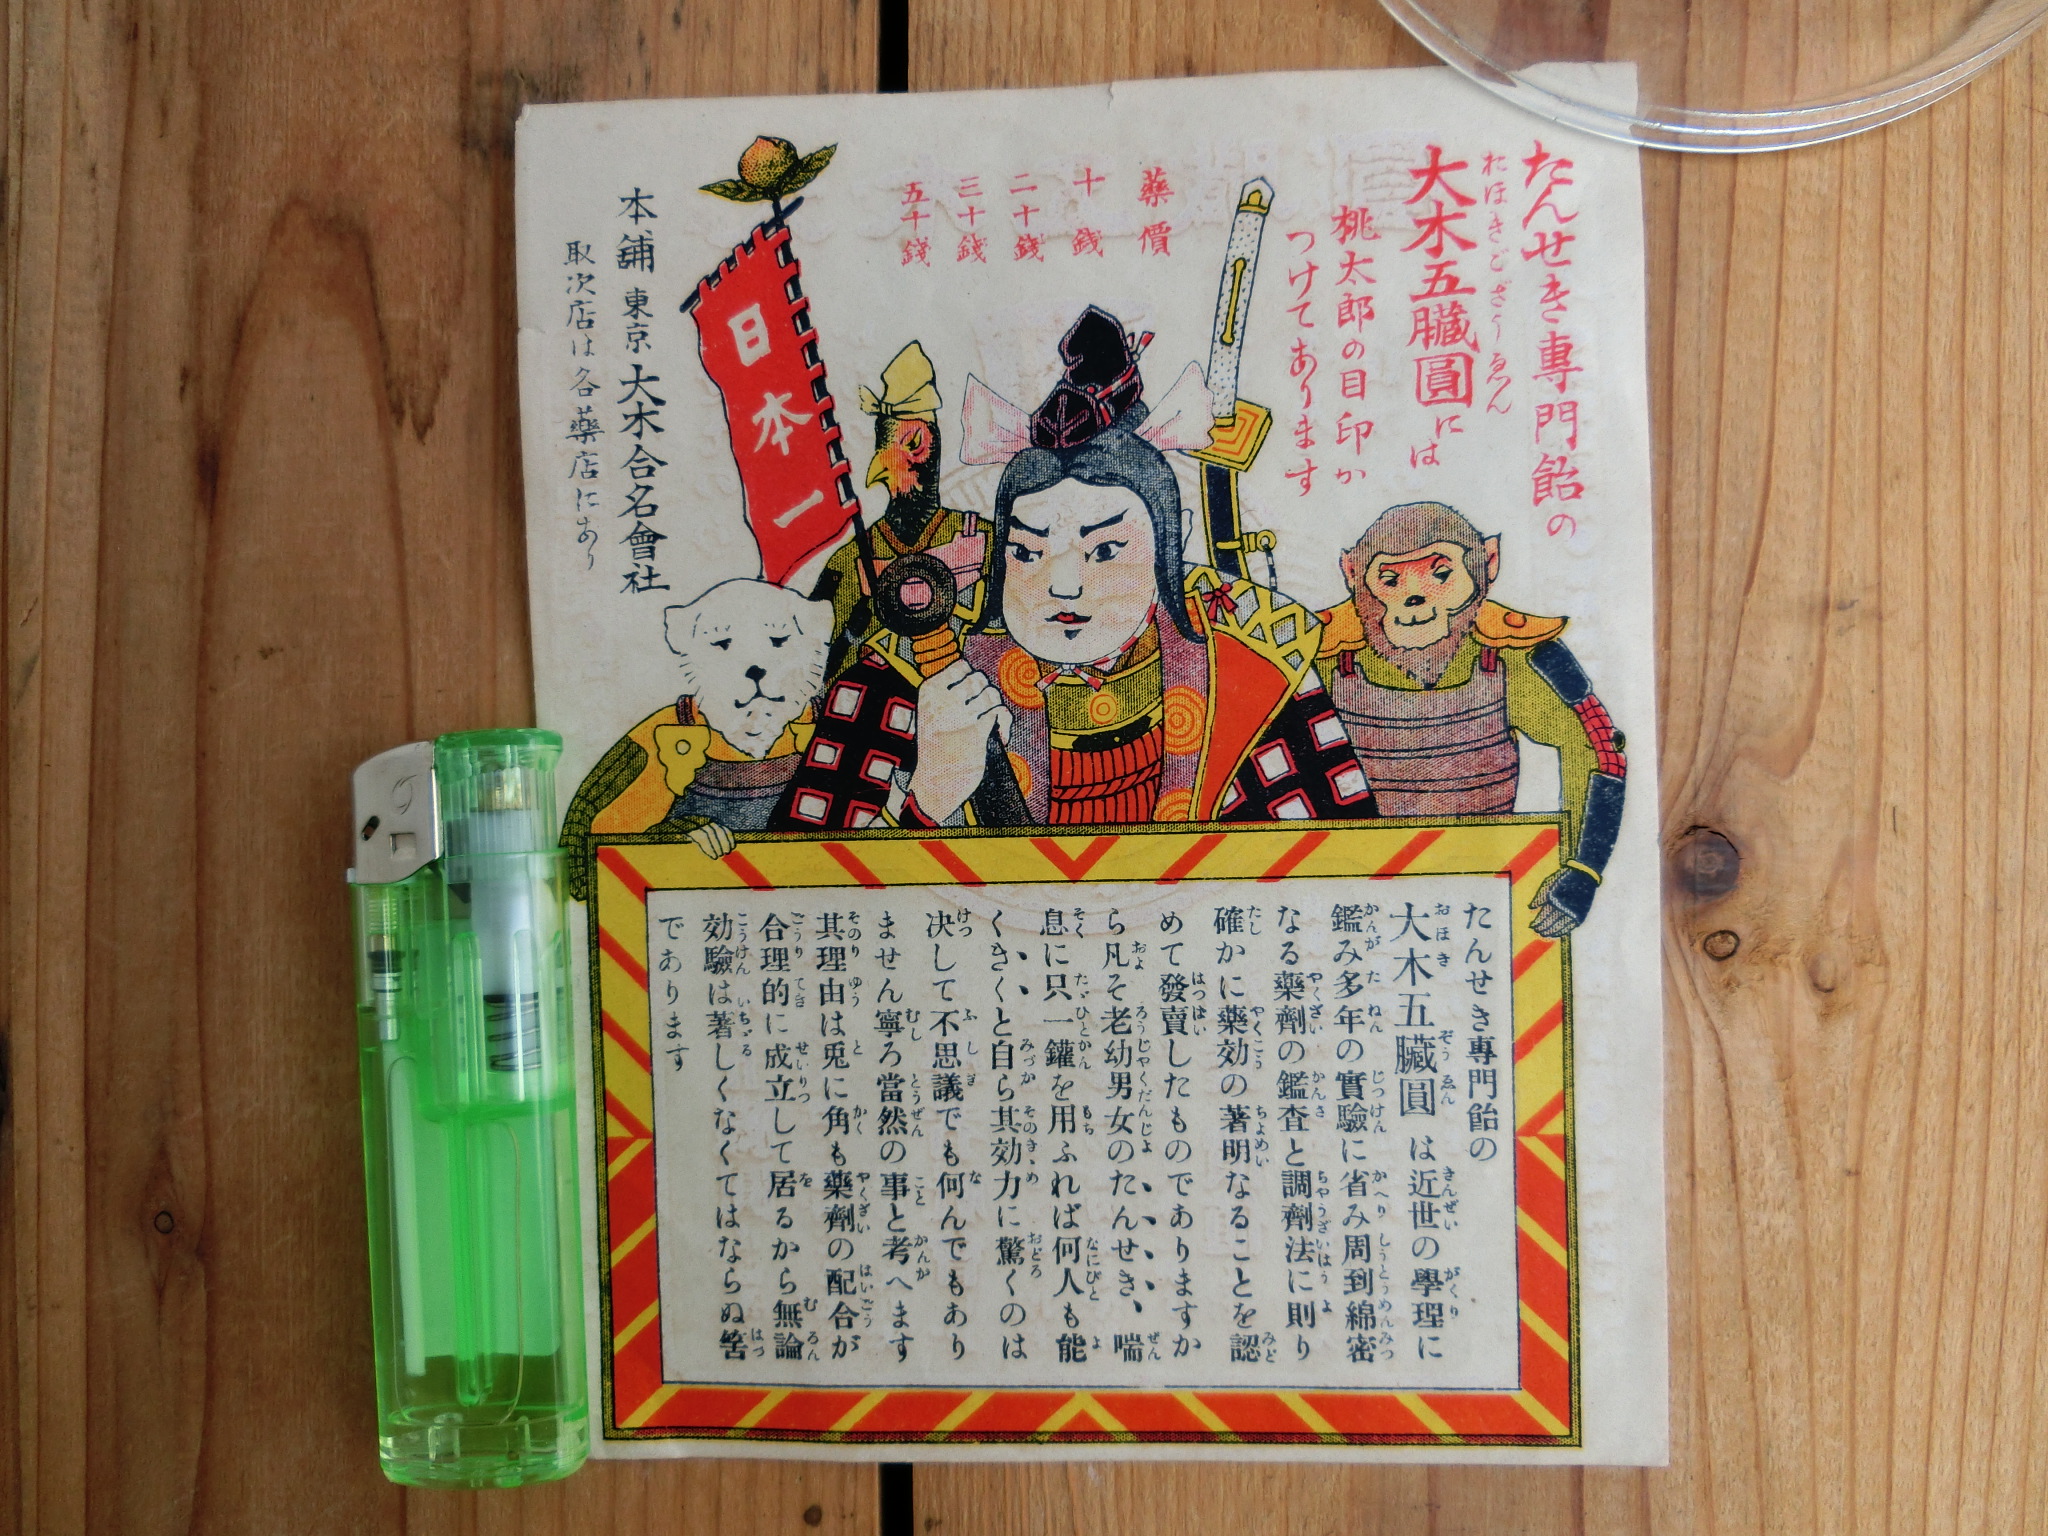 たんせき專門飴の
大木五臟圓には
おほきござうゑん
桃太郎の目印が
つけてあります
藥價
十錢
二十錢
三十錢
五十錢
日本一
本舖 東京 大木合名會社
取次店は各藥店にあり
たんせき專門飴の
大木五臟圓は近世の學理に
鑑み多年の實驗に省み周到綿密
なる藥劑の鑑査と調劑法に則り
確かに藥効の著明なることを認
めて發賣したものでありますか
ら凡そ老幼男女のたんせき、喘
息に只一鑵を用ふれば何人も能
くきくと自ら其効力に驚くのは
决して不思議でも何んでもあり
ません寧ろ當然の事と考へます
其理由は兎に角も藥劑の配合が
合理的に成立して居るから無論
効驗は著しくなくてはならぬ筈
であります